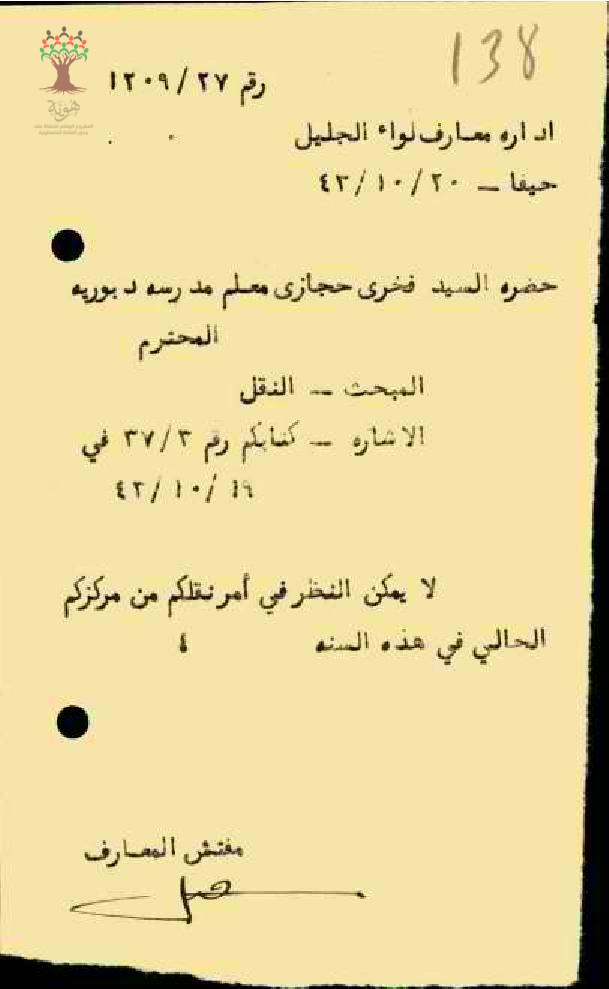 138
رقم ٢٧/ ١٢٠٩
اداره معارف لواء الجليل
حيفا – ٢٠ /١٠ /٤٣
حضره السيد فخرى حجازى معلم مدرسه دبوريه
المحترم
المبحث – النقل
الاشاره – كتابكم رقم ٣/ ٣٧ في
١٩/ ١٠ /٤٣
لا يمكن النظر في أمر نقلكم من مركزكم
الحالي في هذه السنه
مفتش المعارف
هوية